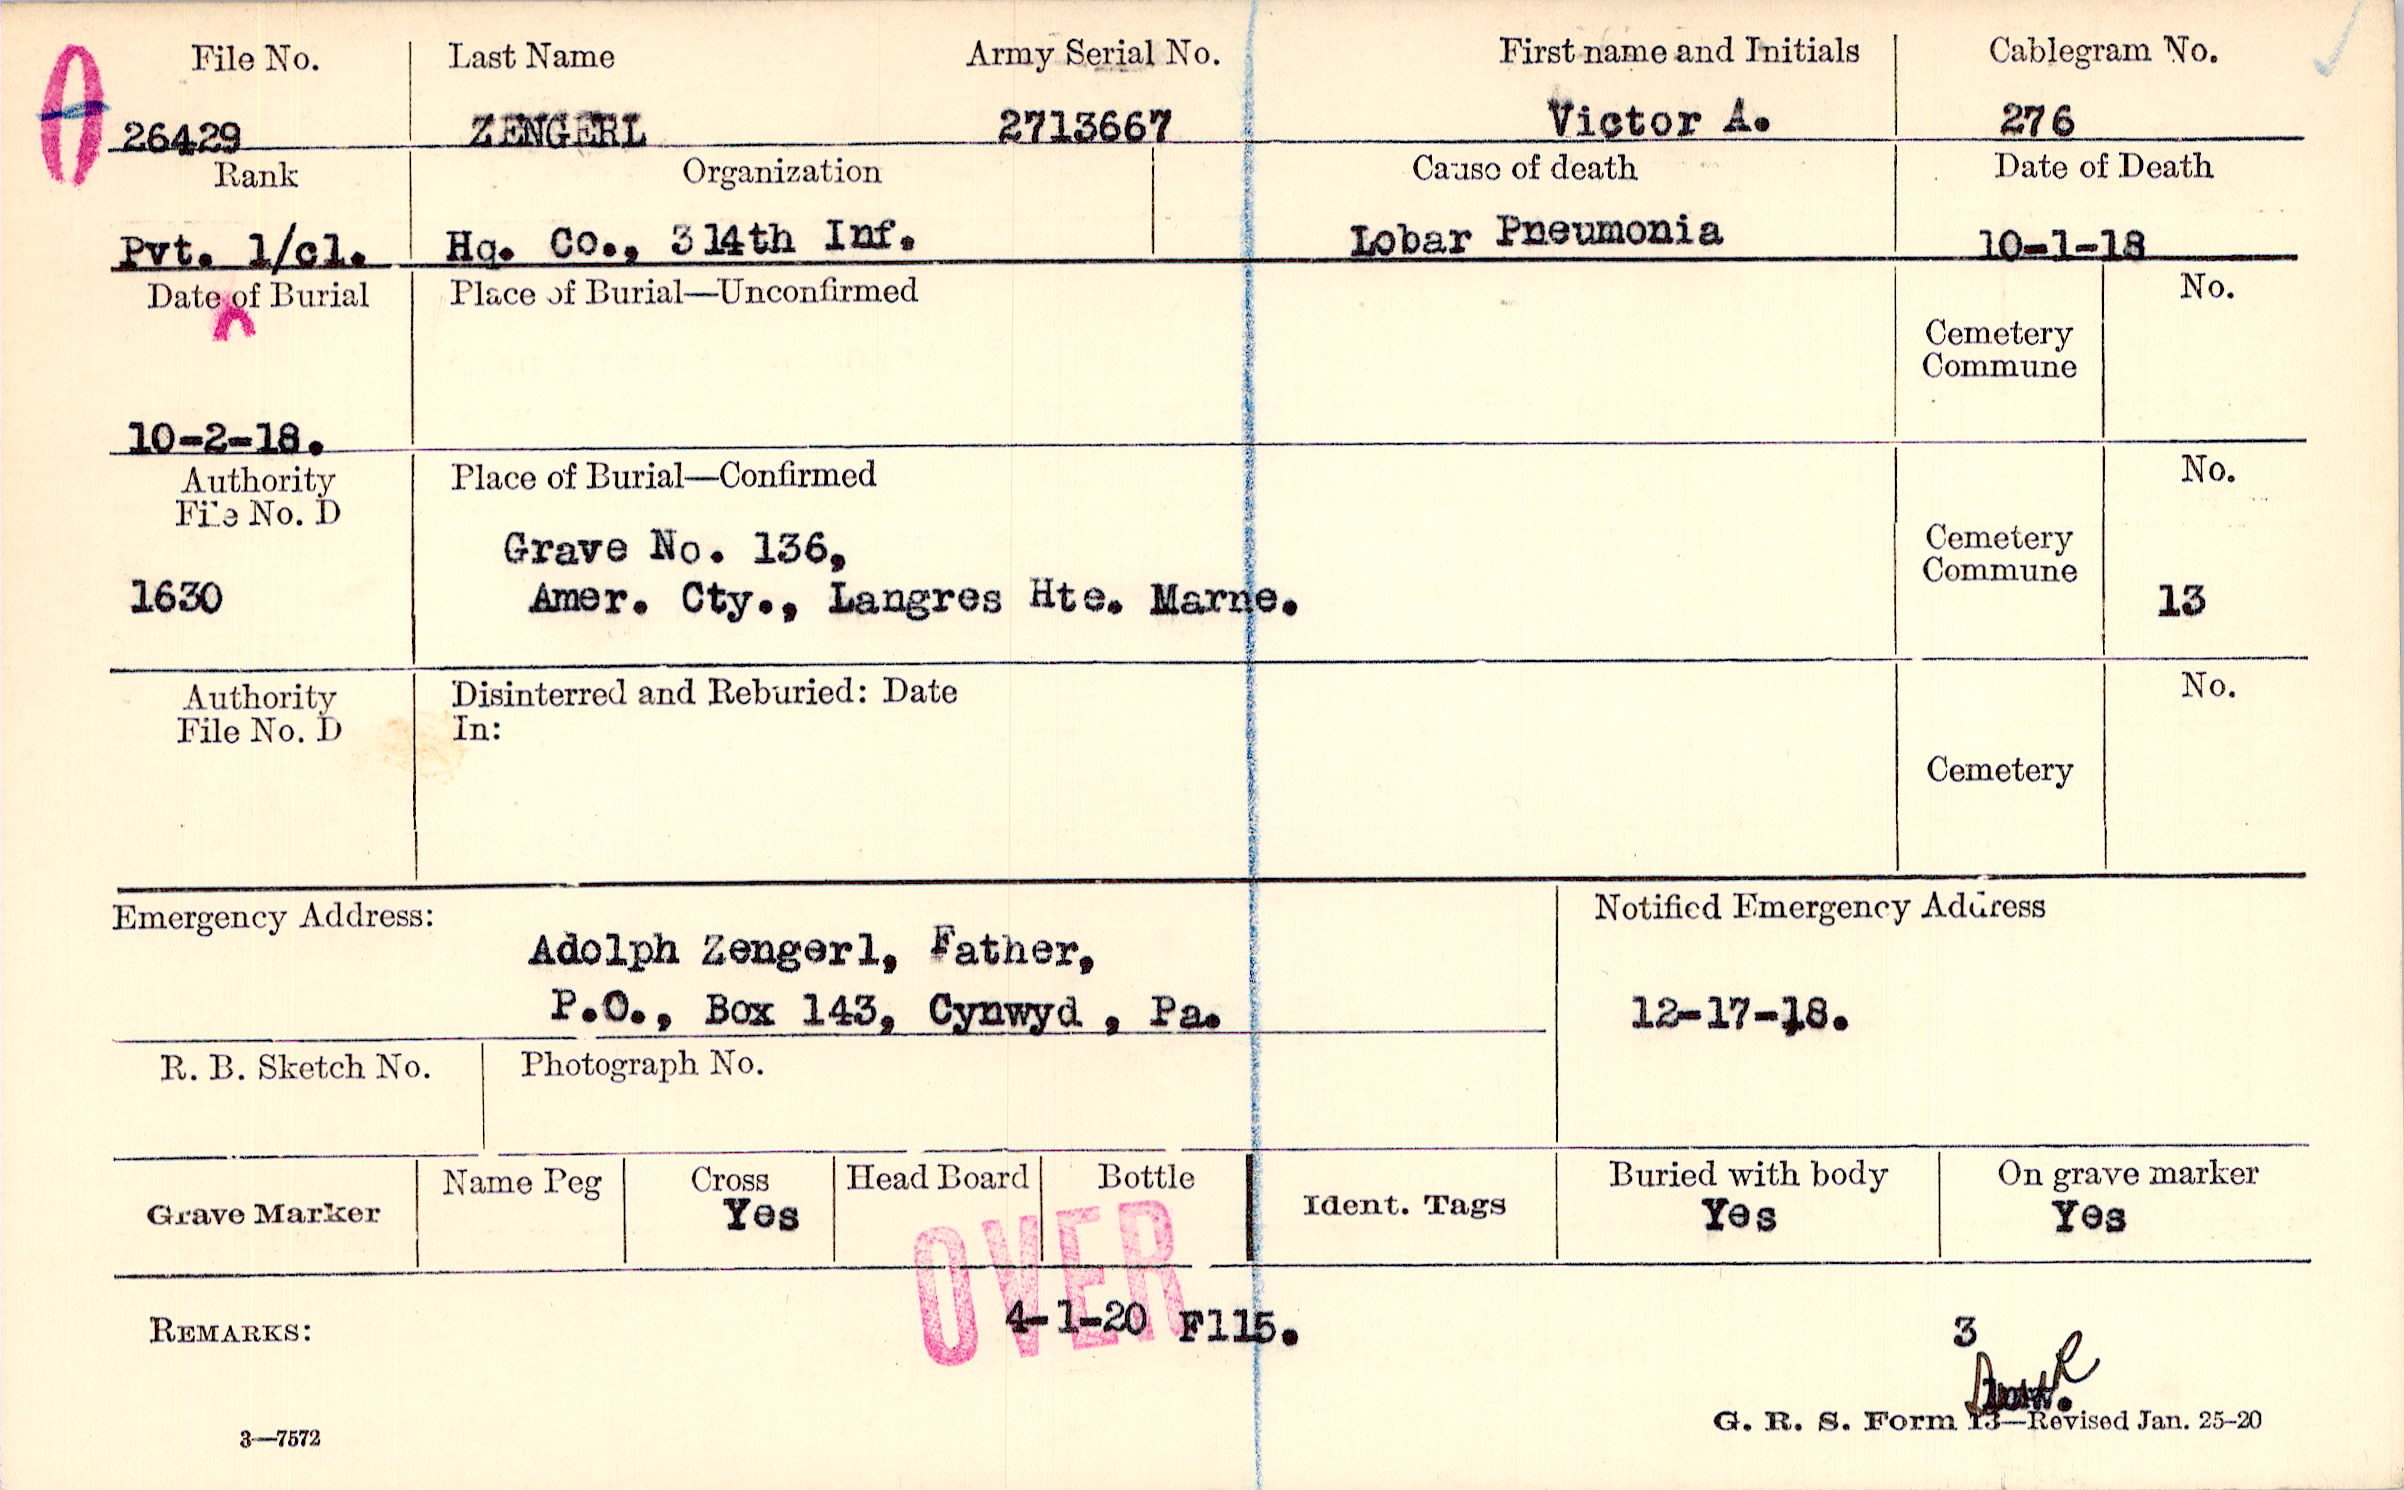 File No. Last Name Army Serial No. First name and Initials Cablegram No.
26429 ZENGERL 2713667 Victor A. 276
Rank Organization Cause of death Date of Death
Pvt. 1/cl. Hq. Co., 314th Inf. Lobar Pneumonia 10-1-18
Date of Burial Place of Burial—Unconfirmed No.
Cemetery
Commune
10-2-18.
Authority Place of Burial—Confirmed No.
File No. D
Grave No. 136, Cemetery
1630 Amer. Cty., Langres Hte. Marne. Commune 13
Authority Disinterred and Reburied: Date No.
File No. D In:
Cemetery
Emergency Address: Notified Emergency Address
Adolph Zengerl, Father,
P.O., Box 143, Cynwyd , Pa. 12-17-18.
R. B. Sketch No. Photograph No.
Grave Marker Name Peg Cross Head Board Bottle Ident. Tags Buried with body On grave marker
Yes Yes Yes
OVER
REMARKS: 4-1-20 F115. 3
G. R. S. Form 13—Revised Jan. 25-20
3—7572